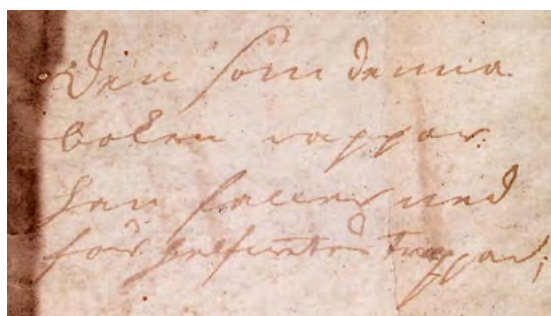 Den som denna
boken rappar
han faller ned
för helfwetes Trappar;